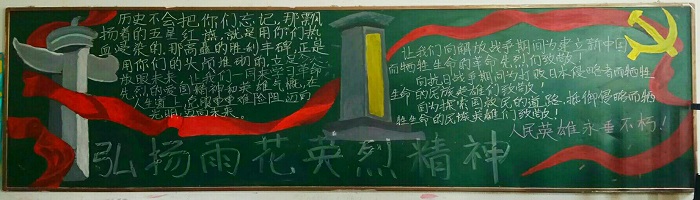 历史不会把你们忘记，那飘
扬着的五星红旗，就是用你们热
血浸染的，那高矗的胜利丰碑，正是
用你们的头颅堆动的，立足
放眼未来，让我们一同来学习革命
先烈的爱国精神和英雄气概，在
人生道上，克服重重难险阻，迈向
光明，迈向未来。
让我们向解放战争期间为建立新中国
而牺牲生命的革命先烈们致敬！
向抗日战争期间为打败日本侵略者而牺牲
生命的民族英雄们致敬！
向为探索国救民的道路，抵御侵略而牺
牲生命的民族英雄们致敬！
人民英雄永垂不朽！
弘扬雨花英烈精神